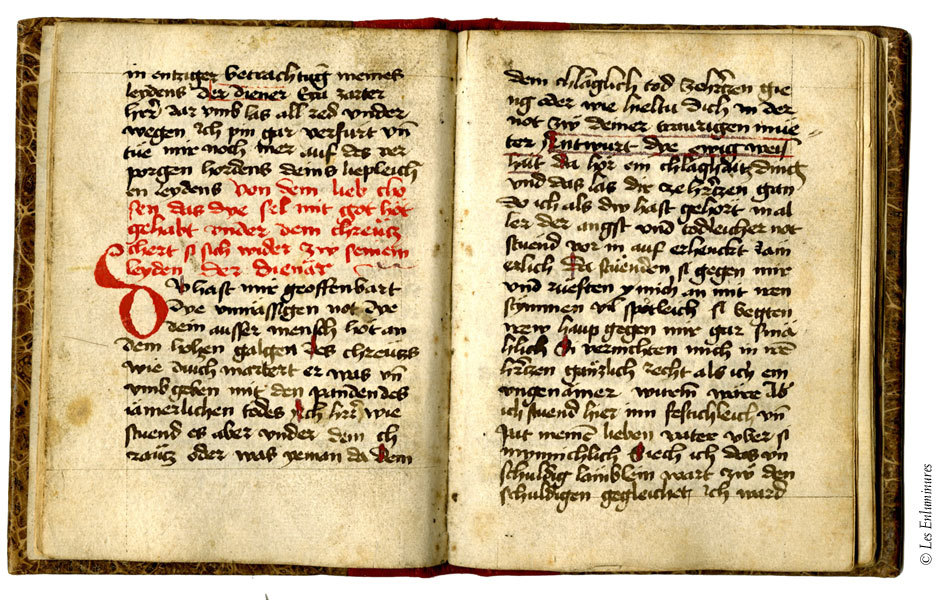 in emziger betrachtūg meines
leydens der diener Eya zarter
her̄ dar vmb las all red vnder
wegen ich pin gar verfurt vn̄
tue mir noch mer auf des ver
porgen hordens deins liepleich
en leydens Von dem lieb cho
sen das dye sel mit got hot
gehabt vnder dem chreucz
chert si sich wider zw seinem
leyden der dienar
DV hast mir geoffenbart
dye vnmassigen not dye
dein ausser mensch hot an
dem hohen galgen des chreucz
wie duich martert er was vn̄
vmb geben mit den panden des
iamerlichen todes Ach her̄ wie
stuend es aber vnder dem ch
reucz oder was yeman da dem
dem chlaglich tod ze herczen gie
ng oder wie hieltu dich in der
not zw deiner traurigen mue
ter Entwurt dye ewig weis
hait da hor ein chlaghaftz dinch
vnd das las dir cze herczen gan
do ich als dw hast gehort in al
ler der angst vnd todleicher not
stuend vor in auf erhenckt iam
erlich Da stuenden si gegen mir
vnd rueften y mich an mit iren
stymmen vil spotleich si begten
irew haup gegen mir gar smä
hlich Si vernichten mich in irē
herczen gänczlich recht als ich ein
vngenämer wurm wäre Ab
ich stuend hier inn festichleich vn̄
pat meinē lieben vater vber si
mynnichlich Siech ich das vn
schuldig lämblein wart zw den
schuldigen gegleichet ich ward
© Les Enluminures